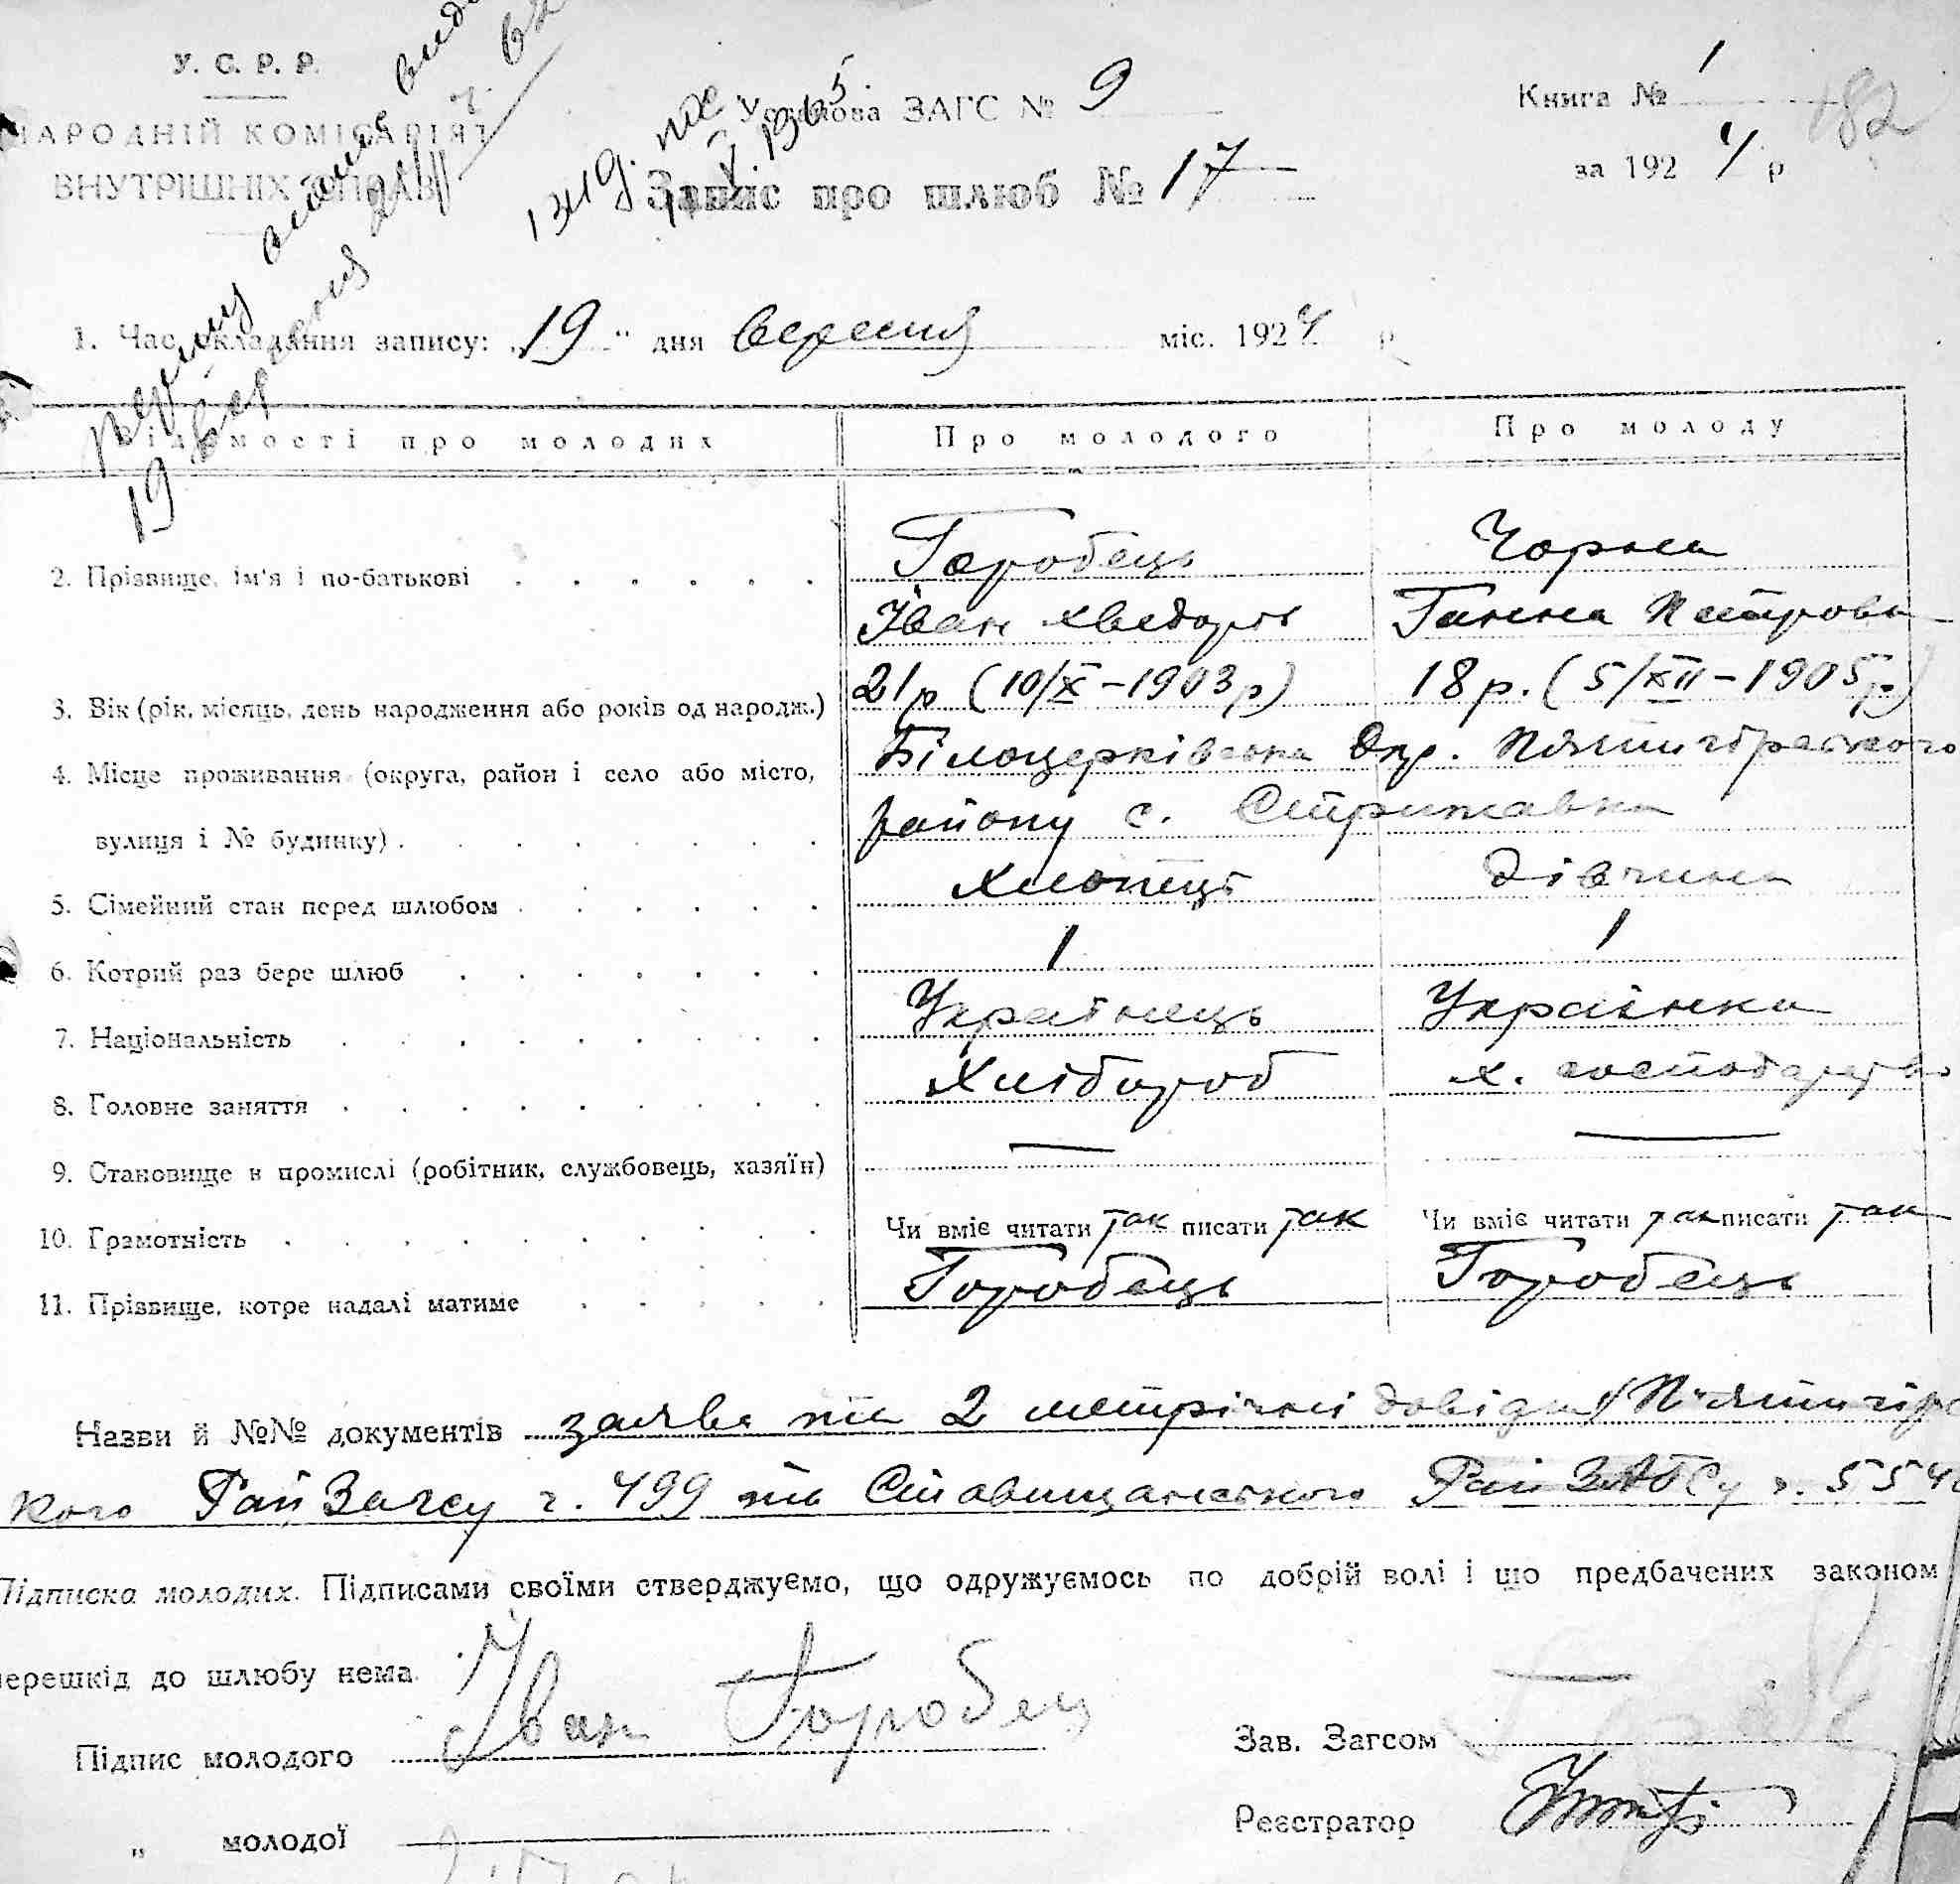 У. С. Р. Р.
НАРОДНІЙ КОМІСАРІЯТ
ВНУТРІШНІХ СПРАВ
Установа ЗАГС № 9
Книга № 1
182
за 1924 р
Запис про шлюб № 17
1. Час складання запису: „19“ дня вересня міс. 1924 р
Відомості про молодих Про молодого Про молоду
2. Прізвище, ім'я і по-батькові Горобець Чорна
Іван Хведорів Ганна Петрова
3. Вік (рік, місяць, день народження або років од народж.) 21р (10/X – 1903р) 18р. (5/XII – 1905р)
4. Місце проживання (округа, район і село або місто, Білоцерківська Окр. Пятигорського
вулиця і № будинку) району с. Стрижавка
5. Сімейний стан перед шлюбом хлопець дівчина
6. Котрий раз бере шлюб 1 1
7. Національність Українець Українка
8. Головне заняття Хлібороб х. господарство
9. Становище в промислі (робітник, службовець, хазяїн) — —
10. Грамотність Чи вміє читати так писати так Чи вміє читати так писати так
11. Прізвище, котре надалі матиме Горобець Горобець
Назви й №№ документів заява та 2 метричні довідки Пятигорс
кого Рай Загсу ч. 499 та Ставищанського Рай ЗАГСу ч. 554
Підписка молодих. Підписами своїми стверджуємо, що одружуємось по добрій волі і що предбачених законом
перешкід до шлюбу нема.
Підпис молодого Іван Горобец
Зав. Загсом
Реєстратор
„ молодої